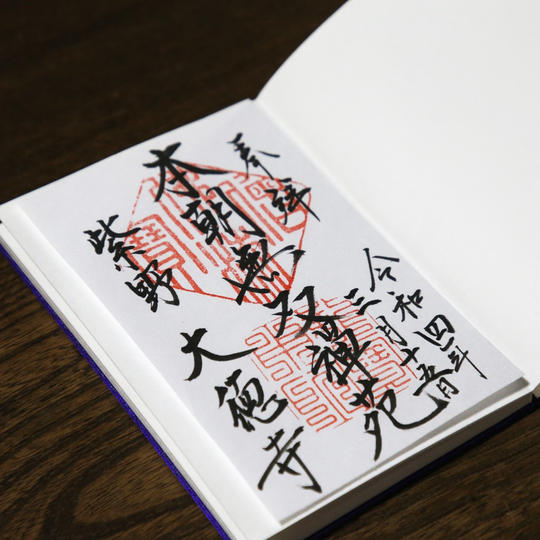 奉拝
令和四年
三月十五日
本朝無双禅苑
紫野
大徳寺